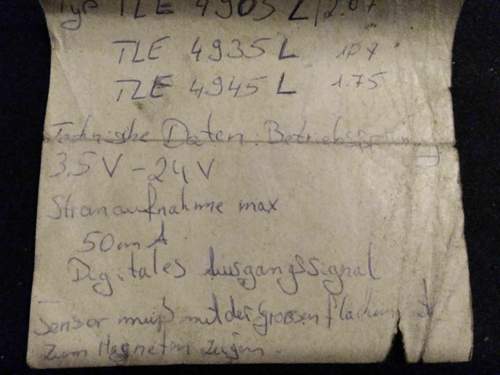 Typ TLE 4905 L 2.07
TLE 4935 L
TLE 4945 L 1.75
Technische Daten: Betriebsspannung
3,5 V - 24 V
Stromaufnahme max
50 mA
Digitales Ausgangssignal
Sensor muß mit der Grossen flachen
zum Magneten zeigen